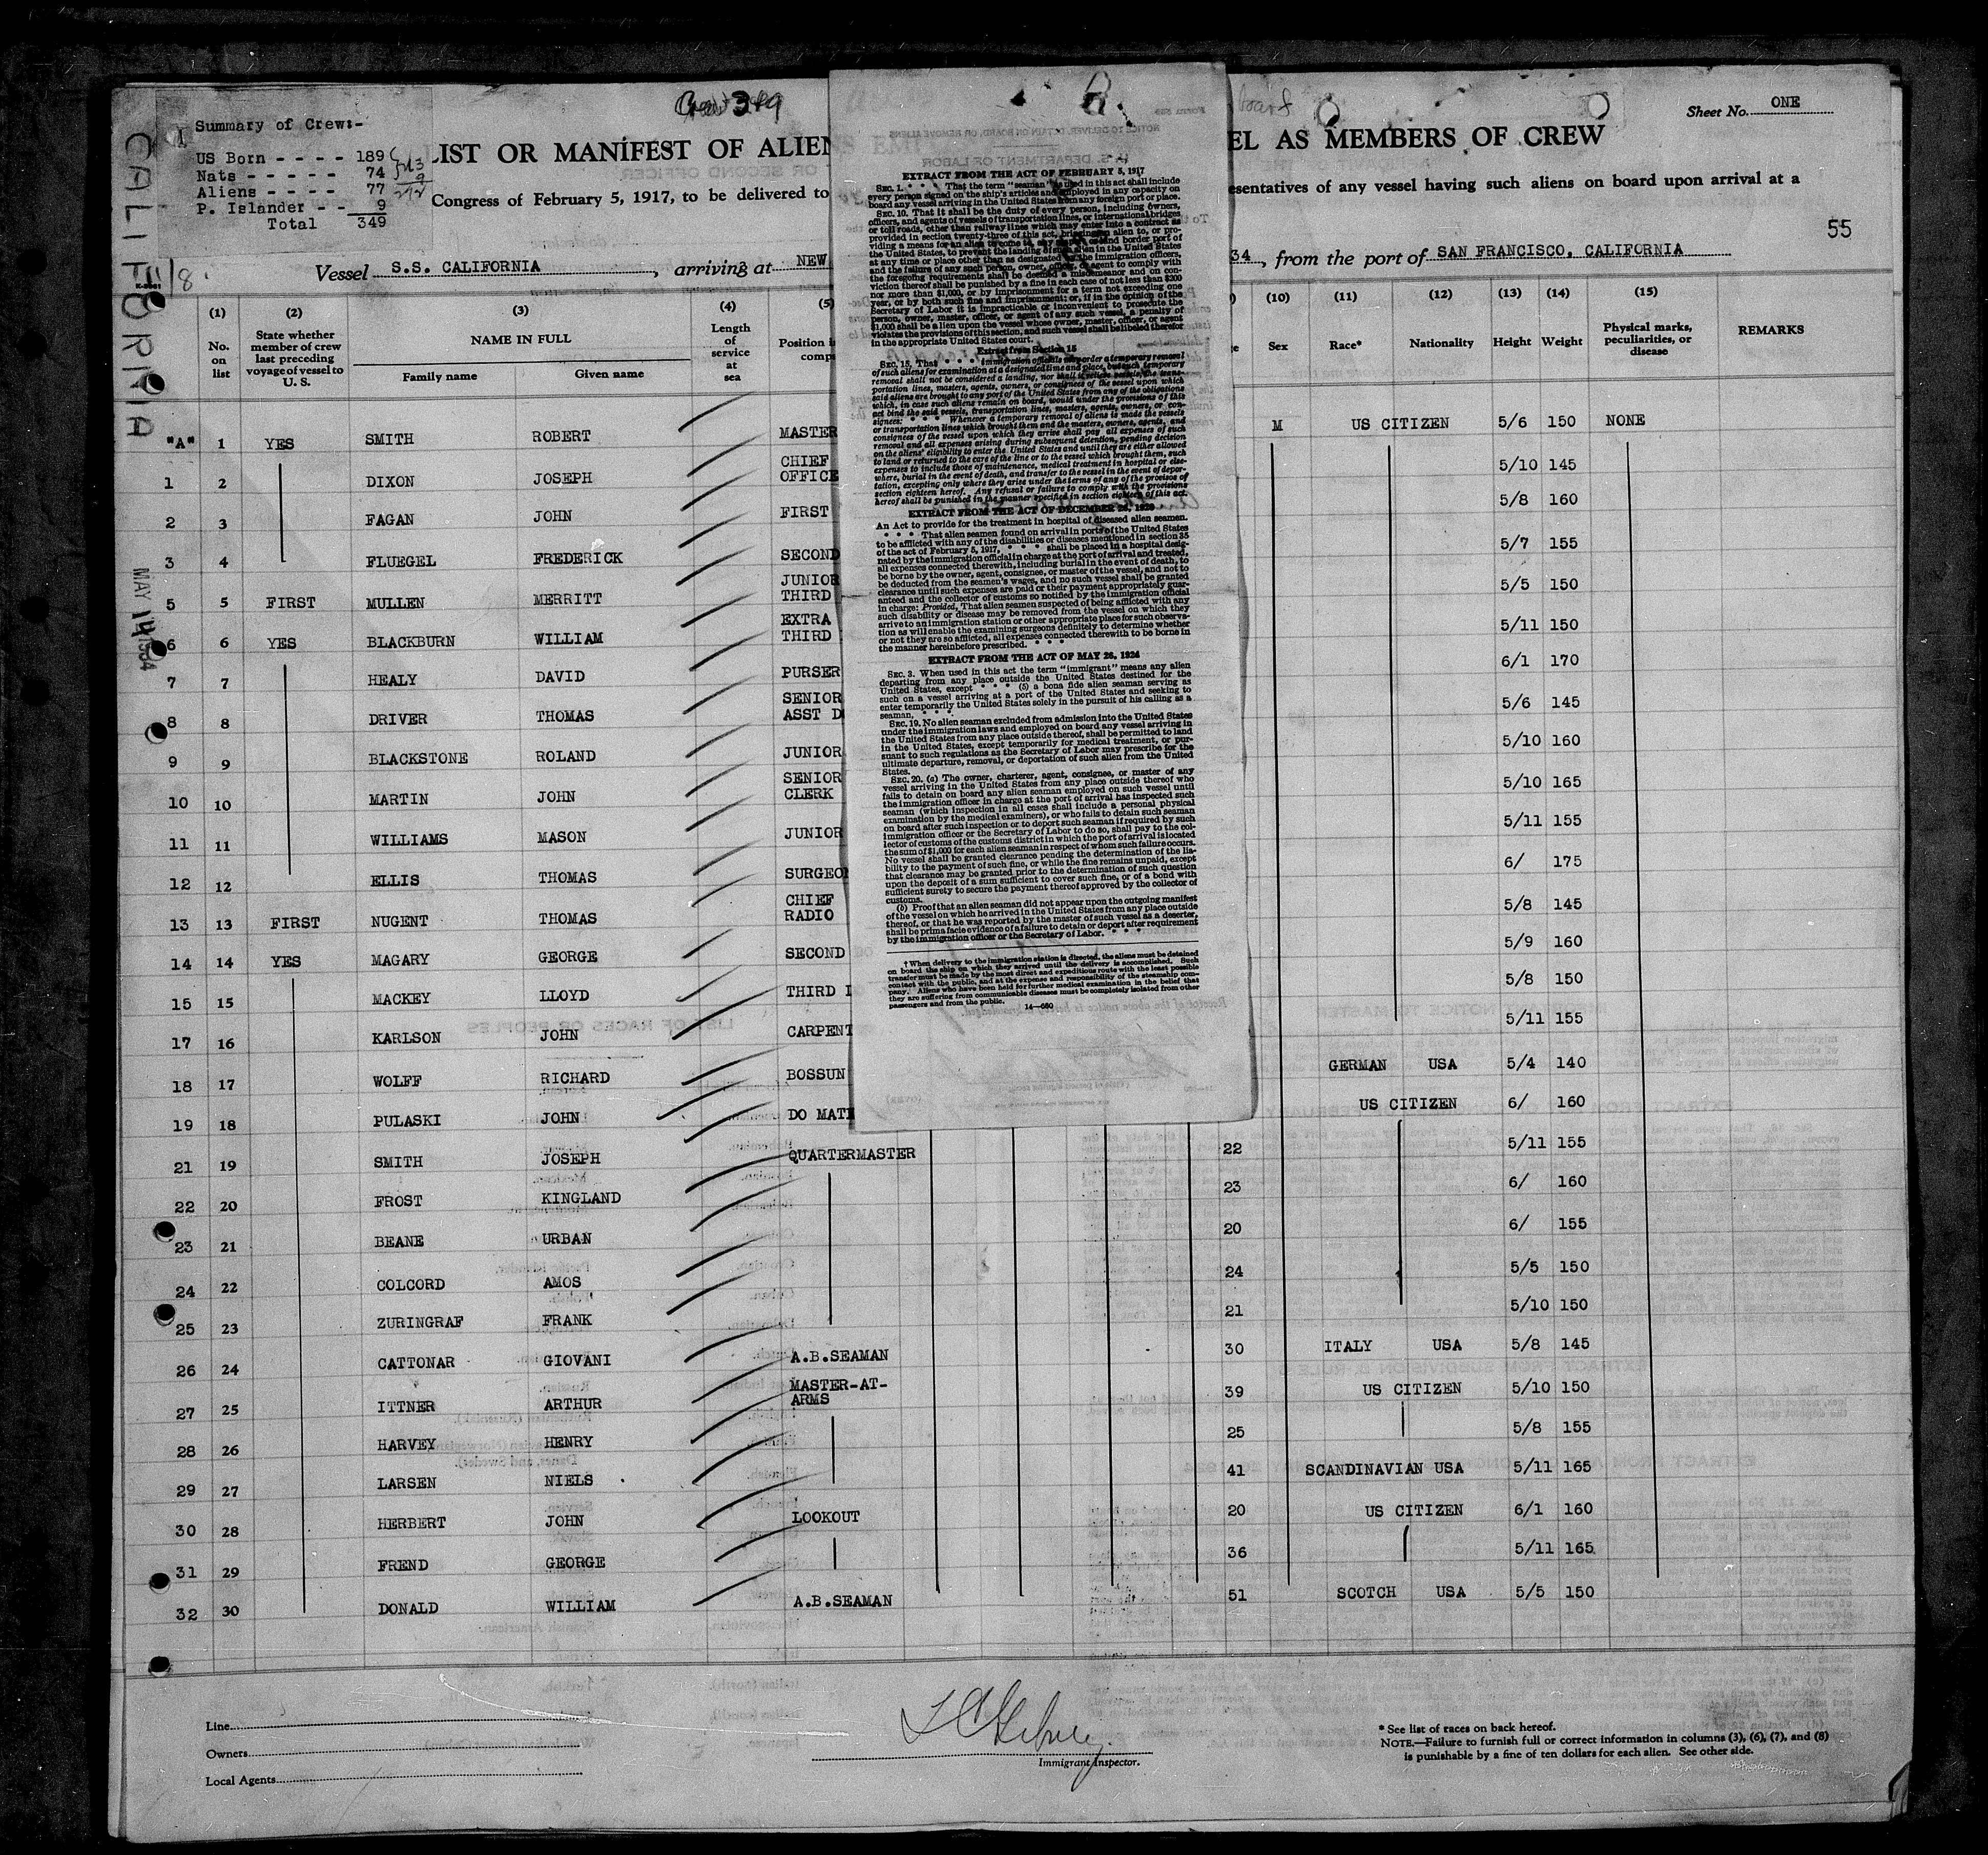 Crew 349
Sheet No. ONE
Summary of Crew:-
US Born - - - - 189
Nats - - - - - 74
Aliens - - - - 77
P. Islander - - 9
Total 349
LIST OR MANIFEST OF ALIEN
EL AS MEMBERS OF CREW
Congress of February 5, 1917, to be delivered to
esentatives of any vessel having such aliens on board upon arrival at a
55
Vessel S.S. CALIFORNIA, arriving at NEW
34, from the port of SAN FRANCISCO, CALIFORNIA
CALIFORNIA
MAY 14 1934
(1) (2) (3) (4) (5) (10) (11) (12) (13) (14) (15)
No. on list
State whether member of crew last preceding voyage of vessel to U. S.
NAME IN FULL
Family name Given name
Length of service at sea
Position i
comp
Sex Race* Nationality Height Weight
Physical marks, peculiarities, or disease
REMARKS
"A" 1 YES SMITH ROBERT MASTER M US CITIZEN 5/6 150 NONE
1 2 DIXON JOSEPH CHIEF OFFICE 5/10 145
2 3 FAGAN JOHN FIRST 5/8 160
3 4 FLUEGEL FREDERICK SECOND 5/7 155
5 5 FIRST MULLEN MERRITT JUNIOR THIRD 5/5 150
6 6 YES BLACKBURN WILLIAM EXTRA THIRD 5/11 150
7 7 HEALY DAVID PURSER 6/1 170
8 8 DRIVER THOMAS SENIOR ASST 5/6 145
9 9 BLACKSTONE ROLAND JUNIOR 5/10 160
10 10 MARTIN JOHN SENIOR CLERK 5/10 165
11 11 WILLIAMS MASON JUNIOR 5/11 155
12 12 ELLIS THOMAS SURGEO 6/ 175
13 13 FIRST NUGENT THOMAS CHIEF RADIO 5/8 145
14 14 YES MAGARY GEORGE SECOND 5/9 160
15 15 MACKEY LLOYD THIRD 5/8 150
17 16 KARLSON JOHN CARPENT 5/11 155
18 17 WOLFF RICHARD BOSSUN GERMAN USA 5/4 140
19 18 PULASKI JOHN DO MAT US CITIZEN 6/ 160
21 19 SMITH JOSEPH QUARTERMASTER 22 5/11 155
22 20 FROST KINGLAND 23 6/ 160
23 21 BEANE URBAN 20 6/ 155
24 22 COLCORD AMOS 24 5/5 150
25 23 ZURINGRAF FRANK 21 5/10 150
26 24 CATTONAR GIOVANI A.B.SEAMAN 30 ITALY USA 5/8 145
27 25 ITTNER ARTHUR MASTER-AT-ARMS 39 US CITIZEN 5/10 150
28 26 HARVEY HENRY 25 5/8 155
29 27 LARSEN NIELS 41 SCANDINAVIAN USA 5/11 165
30 28 HERBERT JOHN LOOKOUT 20 US CITIZEN 6/1 160
31 29 FREND GEORGE 36 5/11 165
32 30 DONALD WILLIAM A.B.SEAMAN 51 SCOTCH USA 5/5 150
EXTRACT FROM THE ACT OF FEBRUARY 5, 1917
SEC. 1. * * * That the term "seaman" as used in this act shall include
every person signed on the ship's articles and employed in any capacity on
board any vessel arriving in the United States from any foreign port or place.
SEC. 10. That it shall be the duty of every person, including owners,
officers, and agents of vessels of transportation lines, or international bridges
or toll roads, other than railway lines which may enter into a contract as
provided in section twenty-three of this act, bringing an alien to, or pro-
viding a means for an alien to come to, any seaport or land border port of
the United States, to prevent the landing of such alien in the United States
at any time or place other than as designated by the immigration officers,
and the failure of any such person, owner, officer, or agent to comply with
the foregoing requirements shall be deemed a misdemeanor and on con-
viction thereof shall be punished by a fine in each case of not less than $200
nor more than $1,000, or by imprisonment for a term not exceeding one
year, or by both such fine and imprisonment; or, if in the opinion of the
Secretary of Labor it is impracticable or inconvenient to prosecute the
person, owner, master, officer, or agent of any such vessel, a penalty of
$1,000 shall be a lien upon the vessel whose owner, master, officer, or agent
violates the provisions of this section, and such vessel shall be libeled therefor
in the appropriate United States court.
Extract from Section 15
SEC. 15. That * * * immigration officials may order a temporary removal
of such aliens for examination at a designated time and place, but such temporary
removal shall not be considered a landing, nor shall it relieve vessels, the trans-
portation lines, masters, agents, owners, or consignees of the vessel upon which
said aliens are brought to any port of the United States from any of the obligations
which, in case such aliens remain on board, would under the provisions of this
act bind the said vessels, transportation lines, masters, agents, owners, or con-
signees: * * * Whenever a temporary removal of aliens is made the vessels
or transportation lines which brought them and the masters, owners, agents, and
consignees of the vessel upon which they arrive shall pay all expenses of such
removal and all expenses arising during subsequent detention, pending decision
on the aliens' eligibility to enter the United States and until they are either allowed
to land or returned to the care of the line or to the vessel which brought them, such
expenses to include those of maintenance, medical treatment in hospital or else-
where, burial in the event of death, and transfer to the vessel in the event of depor-
tation, excepting only where they arise under the terms of any of the provisos of
section eighteen hereof. Any refusal or failure to comply with the provisions
hereof shall be punished in the manner specified in section eighteen of this act.
EXTRACT FROM THE ACT OF DECEMBER 26, 1920
An Act to provide for the treatment in hospital of diseased alien seamen.
* * * That alien seamen found on arrival in ports of the United States
to be afflicted with any of the disabilities or diseases mentioned in section 35
of the act of February 5, 1917, * * * shall be placed in a hospital desig-
nated by the immigration official in charge at the port of arrival and treated,
all expenses connected therewith, including burial in the event of death, to
be borne by the owner, agent, consignee, or master of the vessel, and not to
be deducted from the seamen's wages, and no such vessel shall be granted
clearance until such expenses are paid or their payment appropriately guar-
anteed and the collector of customs so notified by the immigration official
in charge: Provided, That alien seamen suspected of being afflicted with any
such disability or disease may be removed from the vessel on which they
arrive to an immigration station or other appropriate place for such observa-
tion as will enable the examining surgeons definitely to determine whether
or not they are so afflicted, all expenses connected therewith to be borne in
the manner hereinbefore prescribed. * * *
EXTRACT FROM THE ACT OF MAY 26, 1924
SEC. 3. When used in this act the term "immigrant" means any alien
departing from any place outside the United States destined for the
United States, except * * * (5) a bona fide alien seaman serving as
such on a vessel arriving at a port of the United States and seeking to
enter temporarily the United States solely in the pursuit of his calling as a
seaman, * * *
SEC. 19. No alien seaman excluded from admission into the United States
under the immigration laws and employed on board any vessel arriving in
the United States from any place outside thereof, shall be permitted to land
in the United States, except temporarily for medical treatment, or pur-
suant to such regulations as the Secretary of Labor may prescribe for the
ultimate departure, removal, or deportation of such alien from the United
States.
SEC. 20. (a) The owner, charterer, agent, consignee, or master of any
vessel arriving in the United States from any place outside thereof who
fails to detain on board any alien seaman employed on such vessel until
the immigration officer in charge at the port of arrival has inspected such
seaman (which inspection in all cases shall include a personal physical
examination by the medical examiners), or who fails to detain such seaman
on board after such inspection or to deport such seaman if required by such
immigration officer or the Secretary of Labor to do so, shall pay to the col-
lector of customs of the customs district in which the port of arrival is located
the sum of $1,000 for each alien seaman in respect of whom such failure occurs.
No vessel shall be granted clearance pending the determination of the lia-
bility to the payment of such fine, or while the fine remains unpaid, except
that clearance may be granted prior to the determination of such question
upon the deposit of a sum sufficient to cover such fine, or of a bond with
sufficient surety to secure the payment thereof approved by the collector of
customs.
(b) Proof that an alien seaman did not appear upon the outgoing manifest
of the vessel on which he arrived in the United States from any place outside
thereof, or that he was reported by the master of such vessel as a deserter,
shall be prima facie evidence of a failure to detain or deport after requirement
by the immigration officer or the Secretary of Labor. * * *
† When delivery to the immigration station is directed, the aliens must be detained
on board the ship on which they arrived until the delivery is accomplished. Such
transfer must be made by the most direct and expeditious route with the least possible
contact with the public, and at the expense and responsibility of the steamship com-
pany. Aliens who have been held for further medical examination in the belief that
they are suffering from communicable diseases must be completely isolated from other
passengers and from the public.
14—680
Line
Owners
Local Agents
Immigrant Inspector.
* See list of races on back hereof.
NOTE.—Failure to furnish full or correct information in columns (3), (6), (7), and (8)
is punishable by a fine of ten dollars for each alien. See other side.